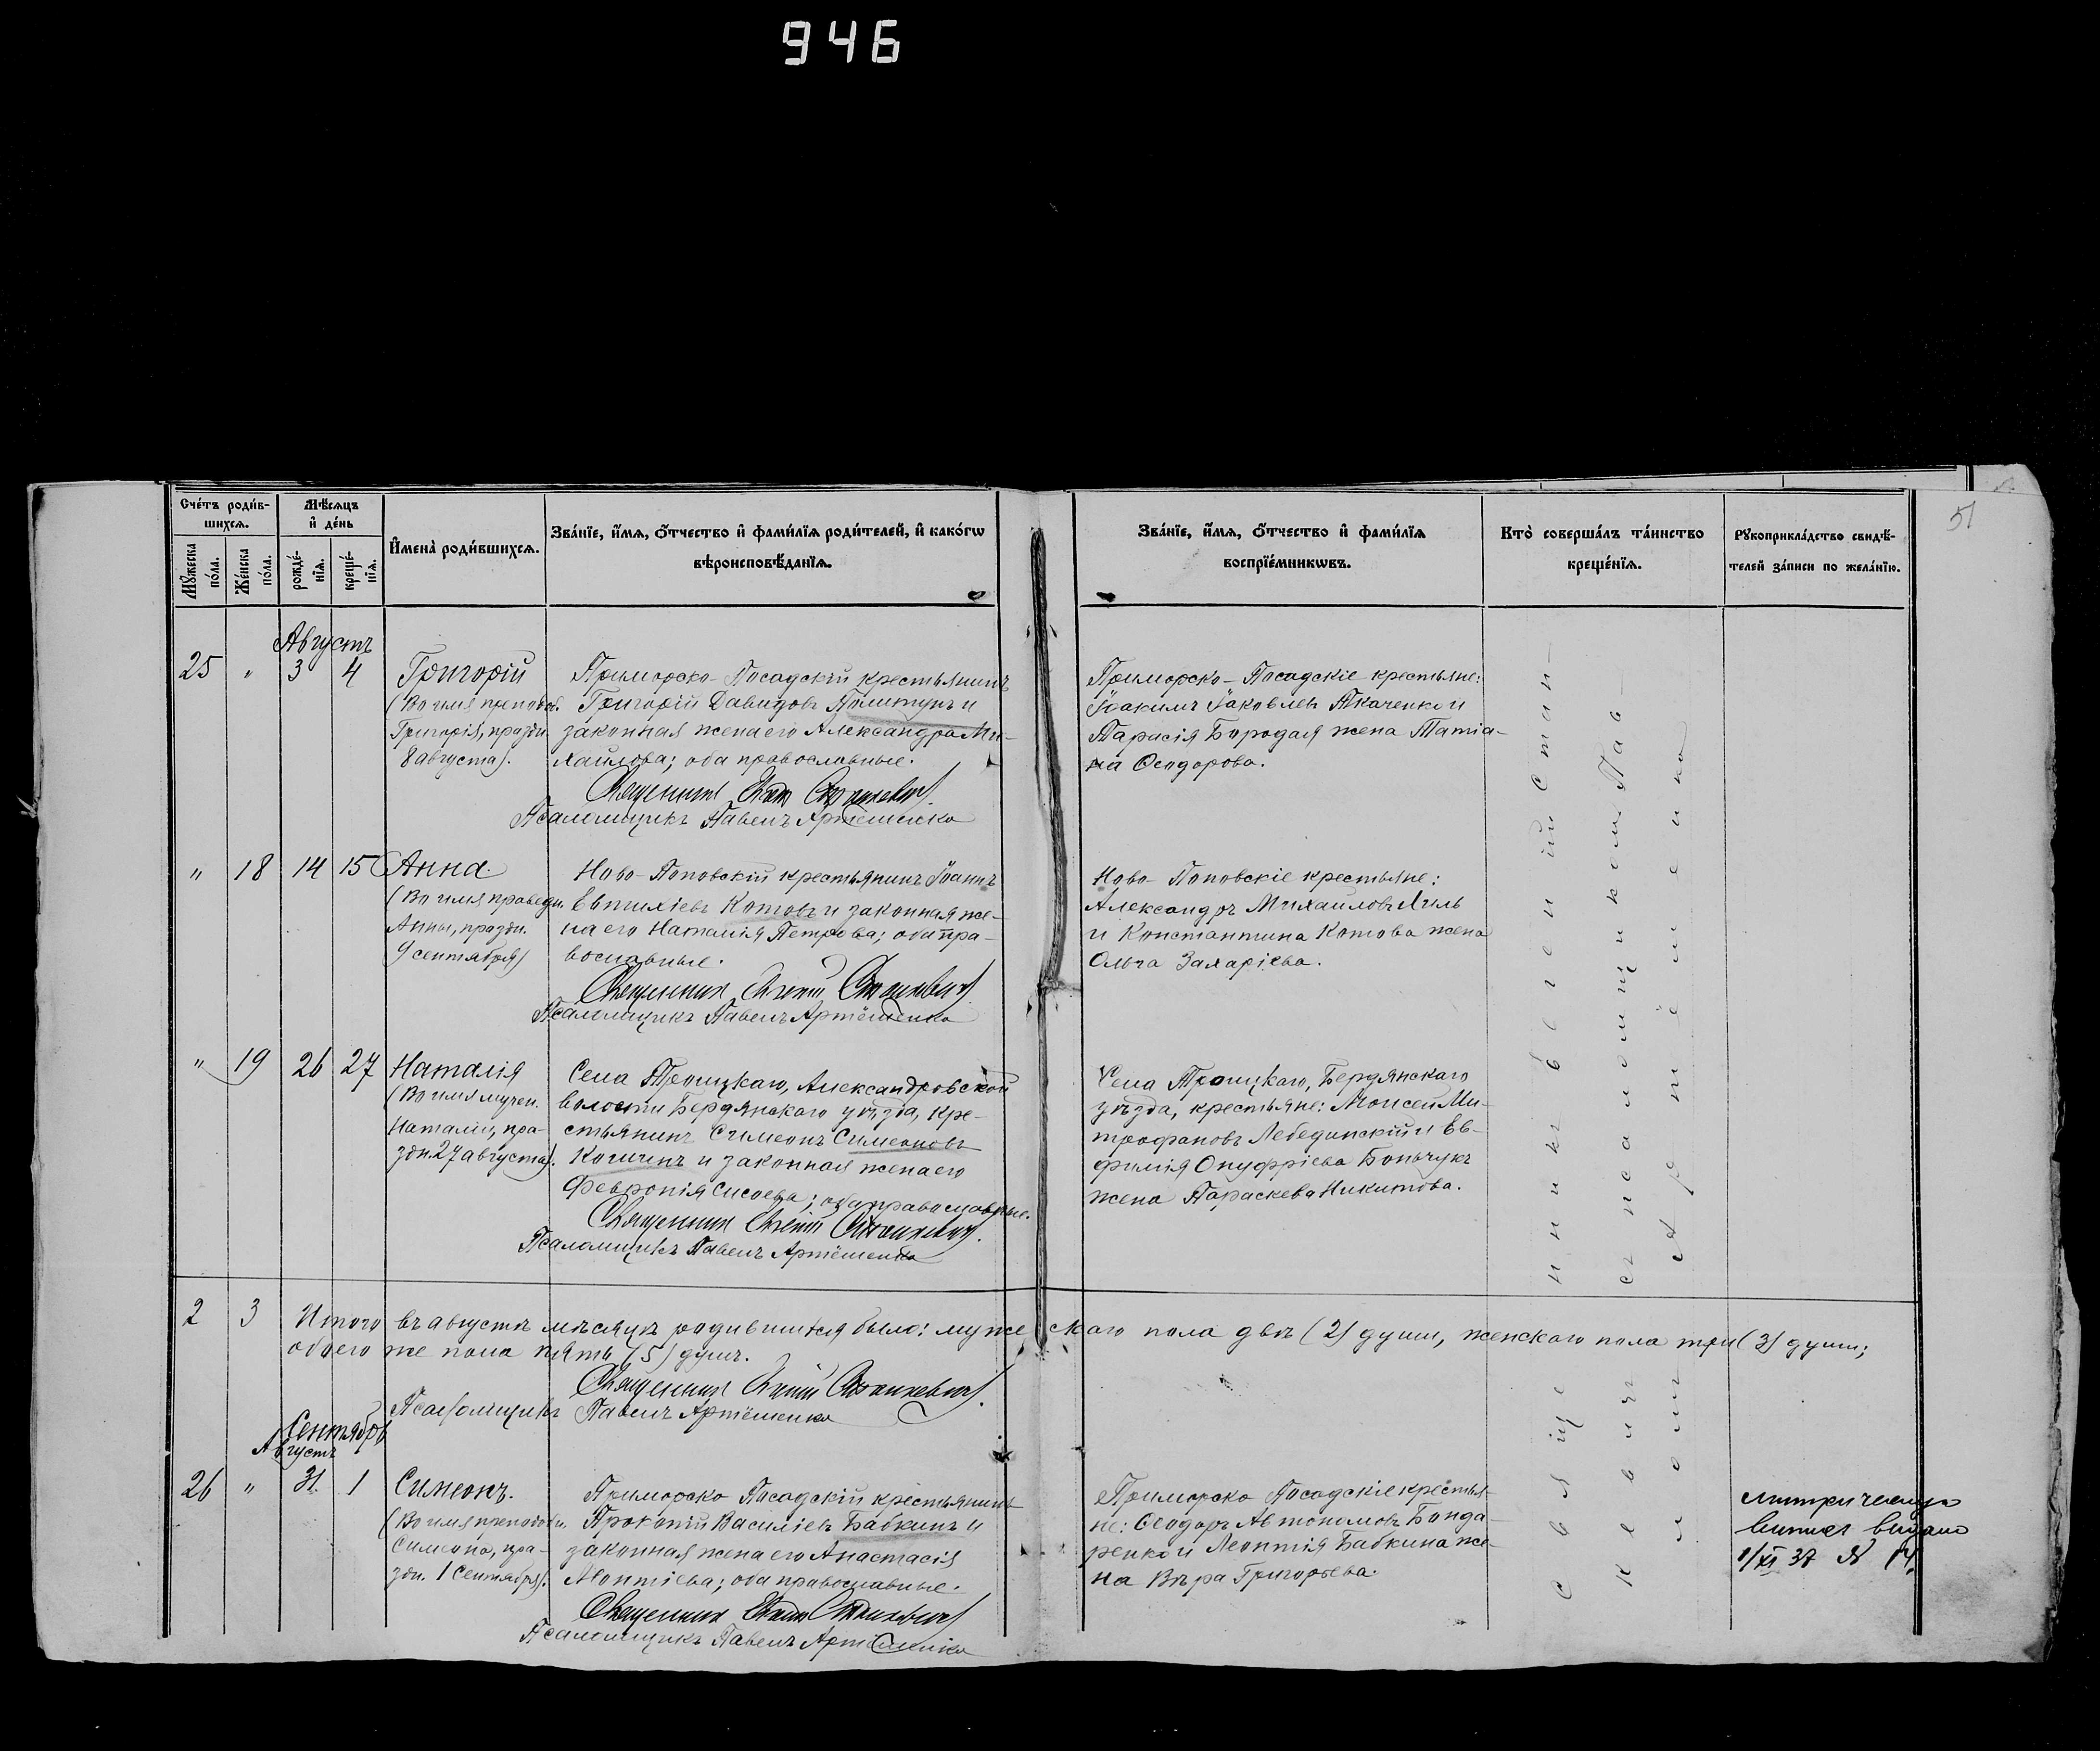 946
51
Счéтъ роди́в-
шихсѧ.
Мꙋ́жеска
по́ла.
Же́нска
по́ла.
Мѣ́сѧцъ
и҆ де́нь
рожде́-
нїѧ.
креще́-
нїѧ.
И҆мена̀ роди́вшихсѧ.
Зва́нїе, и҆́мѧ, ѻ҆́тчество и҆ фами́лїѧ роди́телей, и҆ како́гѡ
вѣроисповѣ́данїѧ.
Зва́нїе, и҆́мѧ, ѻ҆́тчество и҆ фами́лїѧ
воспрїе́мникѡвъ.
Кто̀ соверша́лъ та́инство
креще́нїѧ.
Рꙋкоприкла́дство свидѣ́-
телей за́писи по жела́нїю.
Августъ
25 " 3 4
Григорій
(Во имя преподоб.
Григорія, праздн.
8 августа).
Приморско-Посадскій крестьянинъ
Григорій Давидовъ Политунъ и
законная жена его Александра Ми-
хайлова; оба православные.
Священникъ Станкевич
Псаломщикъ Павелъ Артёменко
Приморско-Посадскіе крестьяне:
Іоакимъ Іаковлевъ Ткаченко и
Тарасія Бородая жена Татіа-
на Ѳеодорова.
" 18 14 15
Анна.
(Во имя праведн.
Анны, праздн.
9 сентября)
Ново-Поповскій крестьянинъ Іоаннъ
Евтихіевъ Котовъ и законная же-
на его Наталія Петрова; оба пра-
вославные.
Священникъ Станкевич
Псаломщикъ Павелъ Артёменко
Ново-Поповскіе крестьяне:
Александръ Михайловъ Хиль
и Константина Котова жена
Ольга Захаріева.
" 19 26 27
Наталія
(Во имя мучен.
Наталіи, пра-
здн. 27 августа).
Села Троицкаго, Александровской
волости Бердянскаго уѣзда, кре-
стьянинъ Симеонъ Симеоновъ
и законная жена его
Февронія Сисоева; оба православные.
Священникъ Станкевич
Псаломщикъ Павелъ Артёменко
Села Троицкаго, Бердянскаго
уѣзда, крестьяне: Моисей Ми-
трофановъ Лебединскій и Ев-
фимія Онуфріева Бончукъ
жена Параскева Никитова.
Священникъ Евгеній Стан-
кевичъ съ псаломщиком Пав-
лом Артёменко
2 3 Итого въ августѣ мѣсяцѣ родившихся было: мужескаго пола двѣ (2) души, женскаго пола три (3) души;
обоего же пола пять (5) душъ.
Священникъ Станкевич
Псаломщикъ Павелъ Артёменко
Сентябрь
Августъ
26 " 31. 1
Симеонъ.
(Во имя преподобн.
Симеона, пра-
здн. 1 Сентября).
Приморско Посадскій крестьянинъ
Прокопій Василіевъ Бабкинъ и
законная жена его Анастасія
Леонтіева; оба православные.
Священникъ Станкевич
Псаломщикъ Павелъ Артёменко
Приморско Посадскіе крестья-
не: Ѳеодоръ Автономовъ Бонда-
ренко и Леонтія Бабкина же-
на Вѣра Григорьева.
видано
1/XI 37 № 14.